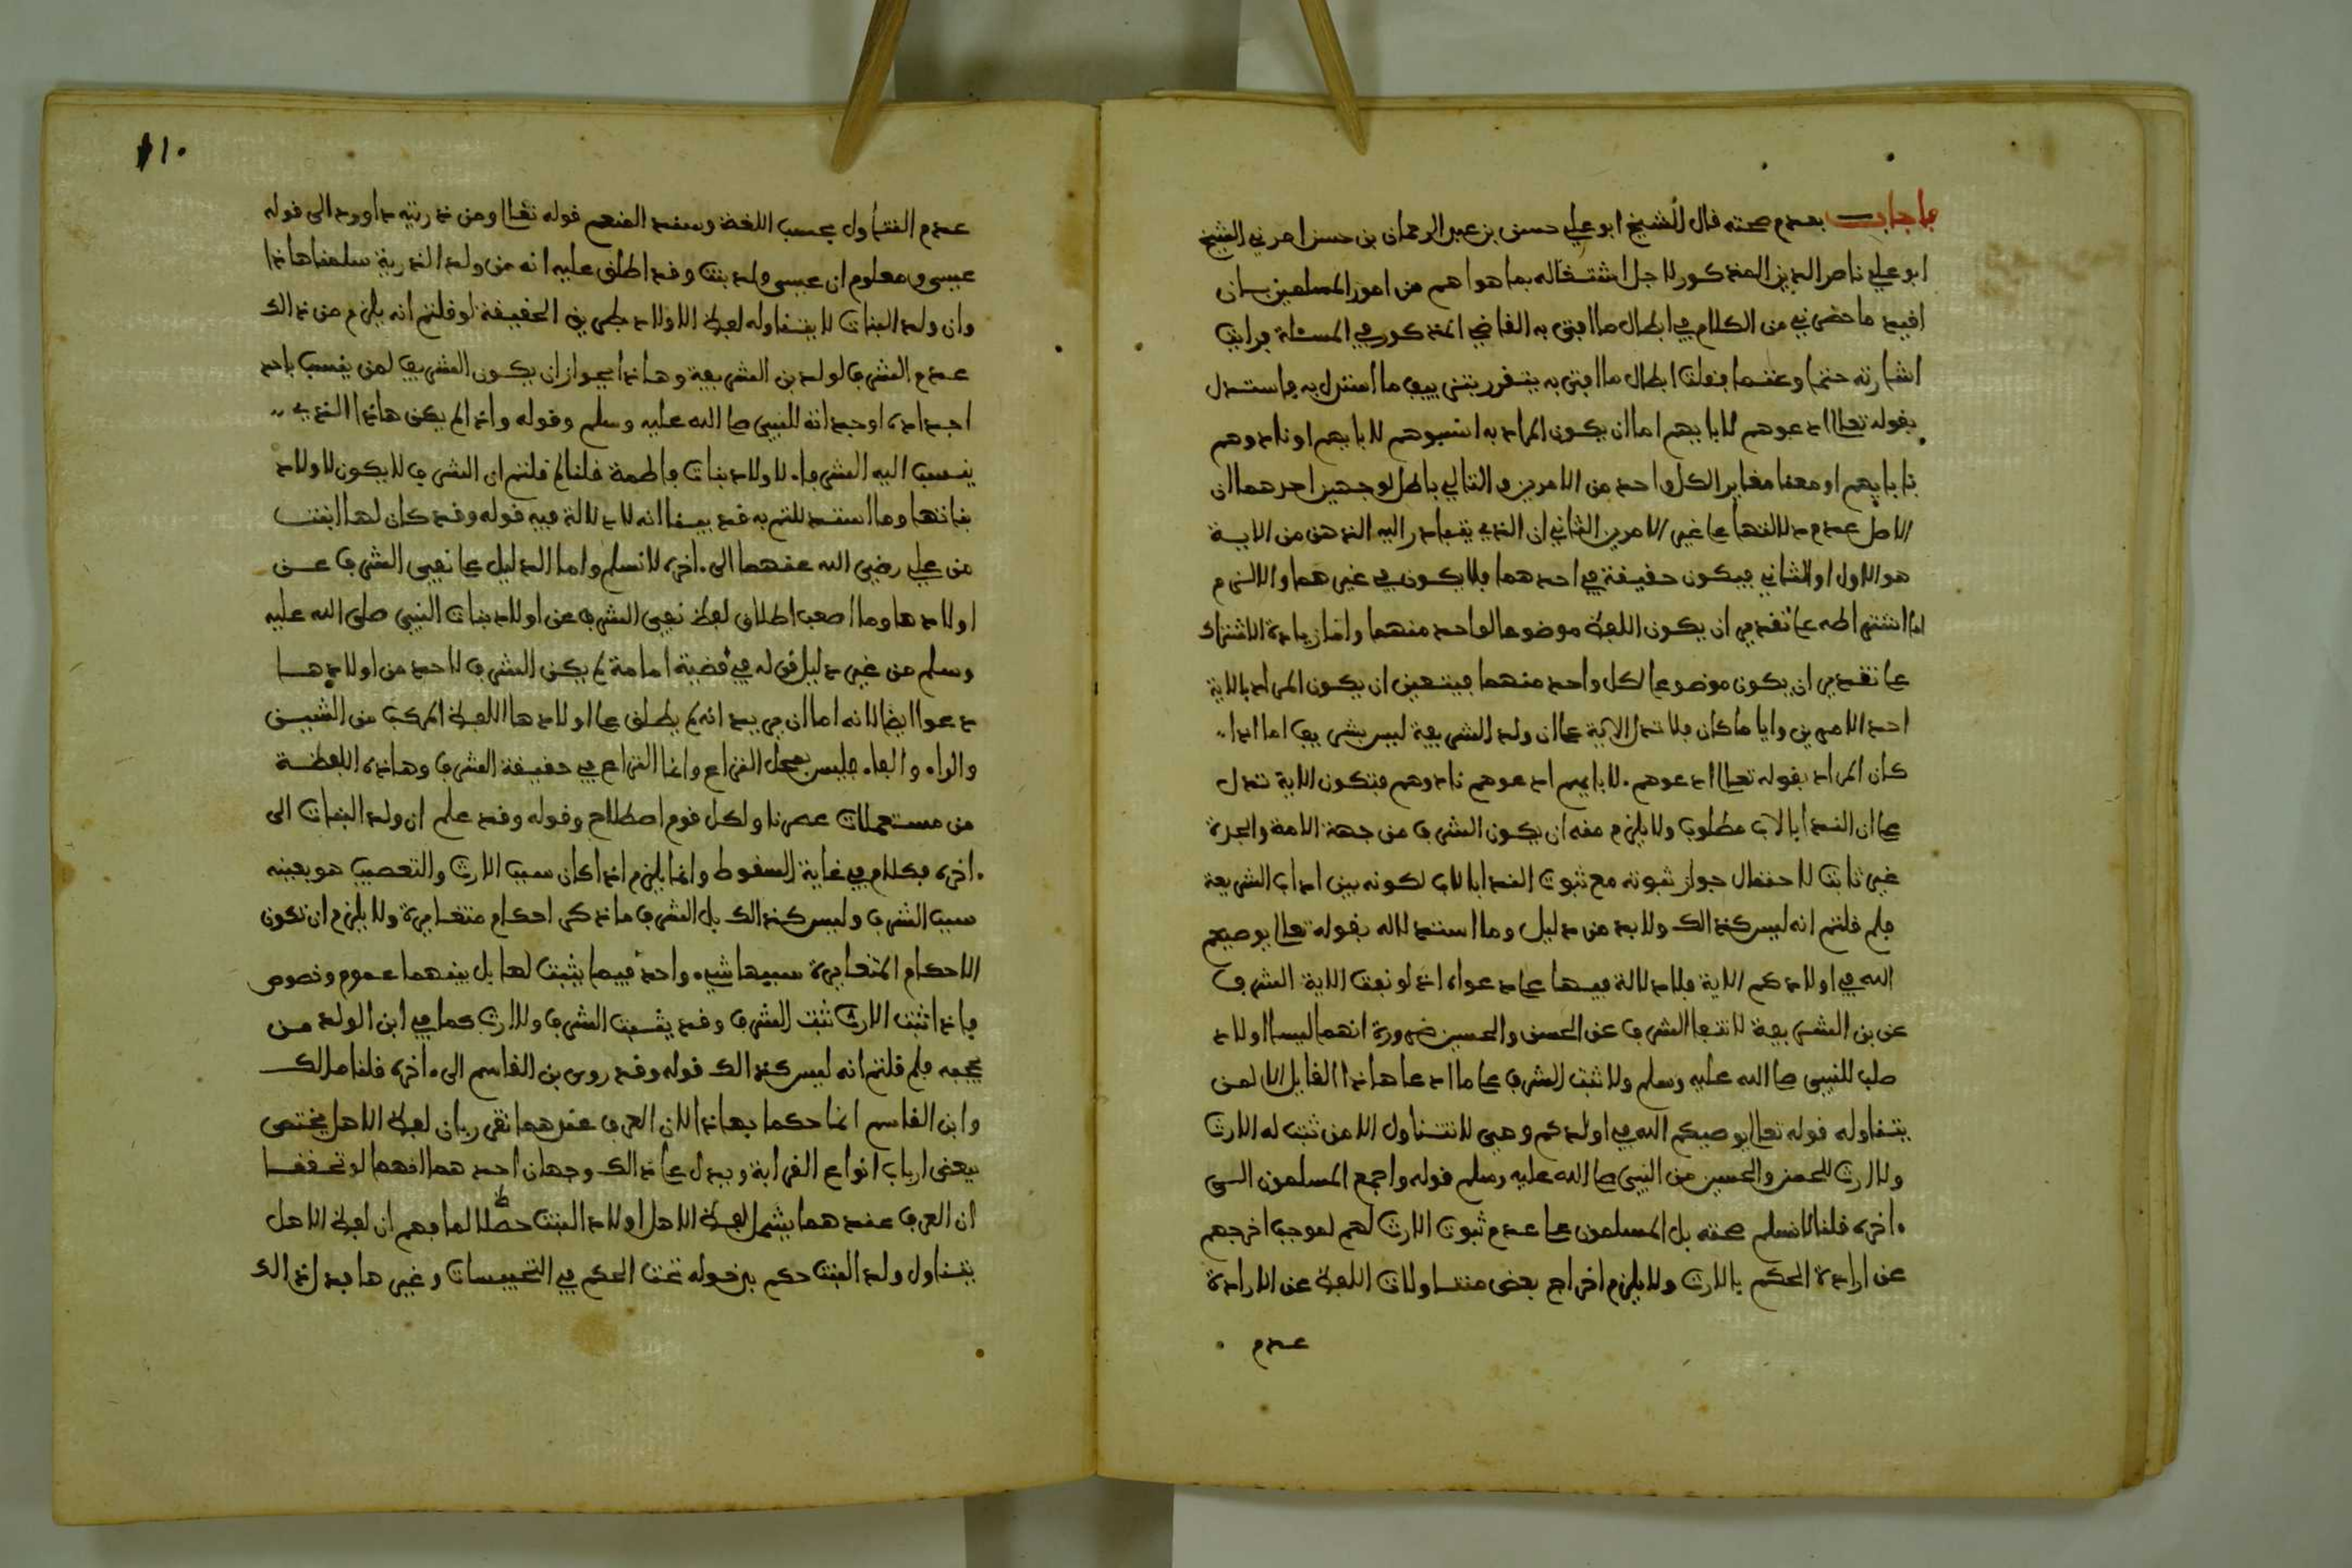 فاجاب بعدم صحته قال الشيخ ابو علي حسن بن عبد الرحمان بن حسن امرني الشيخ
ابو علي ناصر الدين المذكور لاجل اشتغاله بما هو اهم من امور المسلمين بان
اقيد ما حضرني من الكلام في ابطال ما افتى به القاضي المذكور في المسئلة فرايت
اشارته حتما وغنما فقلت ابطال ما افتى به يتقرر بتزييف ما استدل به فاستدل
بقوله تعالى ادعوهم لابايهم اما ان يكون المراد به انسبوهم لابايهم او نادوهم
بابايهم او معنا مغاير الكل واحد من الامرين والتالي باطل لوجهين احدهما ان
الاصل عدم دلالتها على غير الامرين الثاني ان الذي يتبادر اليه الذهن من الاية
هو الاول او الثاني فيكون حقيقة في احدهما فلا يكون في غيرهما والا لزم
اما اشتراطه على تقدير ان يكون اللفظ موضوعا لواحد منهما واما زيادة الاشتراك
على تقدير ان يكون موضوعا لكل واحد منهما فيتعين ان يكون المراد بالاية
احد الامرين وايا ما كان فلا تدل الاية على ان ولد الشريفة ليس بشريف اما اذا
كان المراد بقوله تعالى ادعوهم لابايهم ادعوهم نادوهم فتكون الاية تدل
على ان الندا بالاب مطلوب ولا يلزم منه ان يكون الشرف من جهة الامة والجدة
غير ثابت لاحتمال جواز ثبوته مع ثبوت الندا بالاب لكونه بين اداب الشريعة
فلم قلتم انه ليس كذالك ولا بد من دليل وما استدلاله بقوله تعالى يوصيكم
الله في اولادكم الاية فلا دلالة فيها على دعواه اذ لو نفت الاية الشرف
عن بن الشريفة لانتفا الشرف عن الحسن والحسين ضرورة انهما ليسا اولاد
صلب للنبي صلى الله عليه وسلم ولا ثبت الشرف على ما ادعا هاذا القايل الا لمن
يتناوله قوله تعالى يوصيكم الله في اولدكم وهي لا تتناول الا من ثبت له الارث
ولا ارث للحسن والحسين من النبي صلى الله عليه وسلم قوله واجمع المسلمون الى
ءاخره قلنا لا نسلم صحته بل المسلمون على عدم ثبوت الارث لهم لموجب اخرجهم
عن ارادة الحكم بالارث ولا يلزم اخراج بعض متناولات اللفظ عن الارادة
عدم
١١٠
عدم التناول بحسب اللغة وسند المنع قوله تعالى ومن ذريته داوود الى قوله
عيسى ومعلوم ان عيسى ولد بنت وقد اطلق عليه انه من ولد الذرية سلمنا هاذا
وان ولد البنات لا يتناوله لفظ الاولاد بطريق الحقيقة لو قلتم انه يلزم من ذالك
عدم الشرف لولد بن الشريفة وهاذا يجوز ان يكون الشريف لمن ينسب باحد
اجداده او جداته للنبي صلى الله عليه وسلم وقوله واذا لم يكن هاذا الذي
ينسب اليه الشرفاء لاولاد بنات فاطمة قلنا لم قلتم ان الشرف لا يكون لاولاد
بناتها وما استدللتم به قد بينا انه لا دلالة فيه قوله وقد كان لها ابنت
من علي رضي الله عنهما الى ءاخره لا نسلم واما الدليل على نفي الشرف عن
اولادها وما اصعب اطلاق لفظ نفي الشرف عن اولاد بنات النبي صلى الله عليه
وسلم من غير دليل قوله في قضية امامة لم يكن الشرف لاحد من اولادها
دعوا ايضا لانه اما ان يريد انه لم يطلق على اولادها اللفظ المركب من الشين
والراء والفاء فليس بمحل النزاع وانما النزاع في حقيقة الشرف وهاذه اللفظة
من مستعملات عصرنا ولكل قوم اصطلاح وقوله وقد علم ان ولد البنات الى
ءاخره فكلام في غاية السقوط وانما يلزم اذا كان سبب الارث والتعصيب هو بعينه
سبب الشرف وليس كذالك بل الشرف ما ذكر احكام متغايرة ولا يلزم ان تكون
الاحكام المتغايرة سببها شيء واحد فيما يثبت لها بل بينهما عموم وخصوص
فاذا ثبت الارث ثبت الشرف وقد يثبت الشرف ولا ارث كما في ابن الولد من
يحجبه فلم قلتم انه ليس كذالك قوله وقد روى بن القاسم الى ءاخره قلنا مالك
وابن القاسم انما حكما بهاذا لان العرف عندهما تقرر بان لفظ الاهل يختص
ببعض ارباب انواع القرابة ويدل على ذالك وجهان احدهما انهما لو تحققا
ان العرف عندهما يشمل لفظ الاهل اولاد البنت لما فهم ان لفظ الاهل
يتناول ولد البنت حكم بدخوله تحت الحكم في التحبيسات وغيرها فدل ذالك